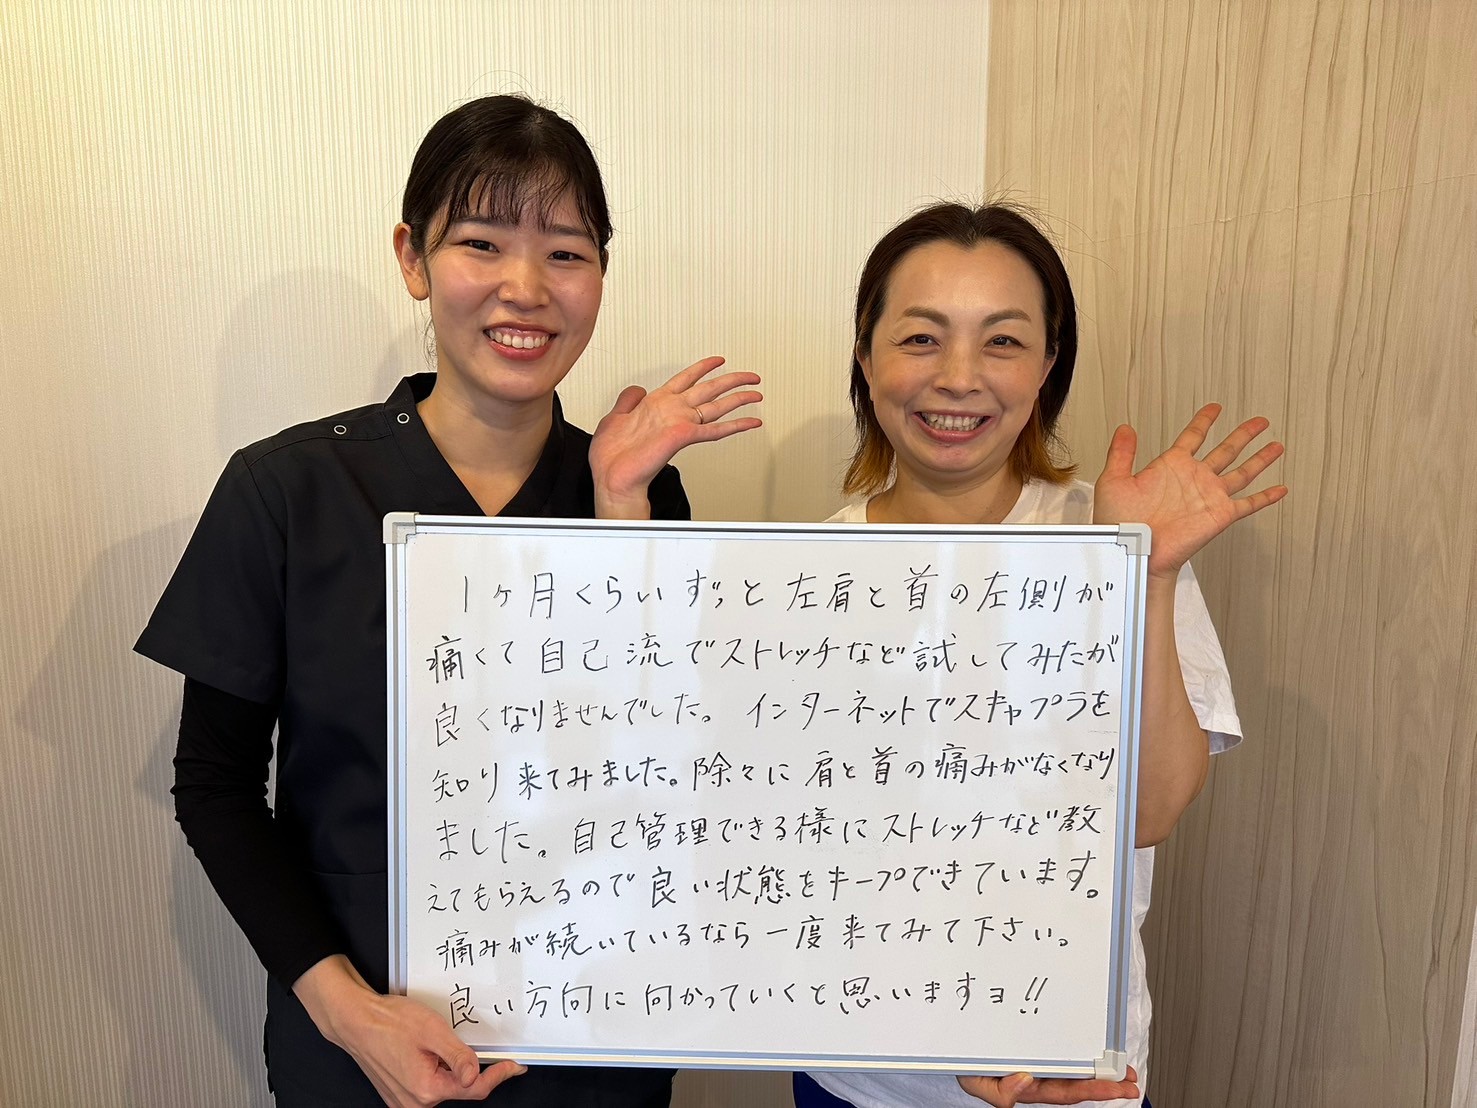 1ヶ月くらいずっと左肩と首の左側が
痛くて自己流でストレッチなど試してみたが
良くなりませんでした。インターネットでスキャプラを
知り来てみました。除々に肩と首の痛みがなくなり
ました。自己管理できる様にストレッチなど教
えてもらえるので良い状態をキープできています。
痛みが続いているなら一度来てみて下さい。
良い方向に向かっていくと思いますョ!!